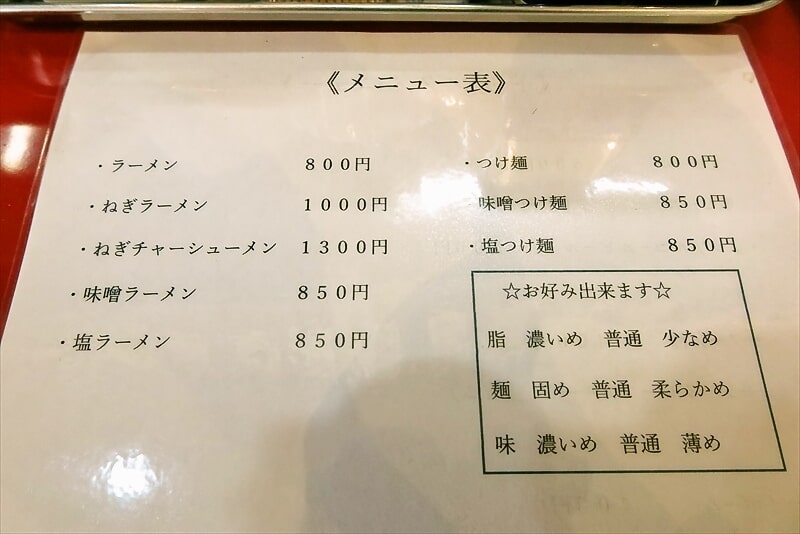 《メニュー表》
・ラーメン　８００円
・ねぎラーメン　１０００円
・ねぎチャーシューメン　１３００円
・味噌ラーメン　８５０円
・塩ラーメン　８５０円
・つけ麺　８００円
・味噌つけ麺　８５０円
・塩つけ麺　８５０円
☆お好み出来ます☆
脂　濃いめ　普通　少なめ
麺　固め　普通　柔らかめ
味　濃いめ　普通　薄め